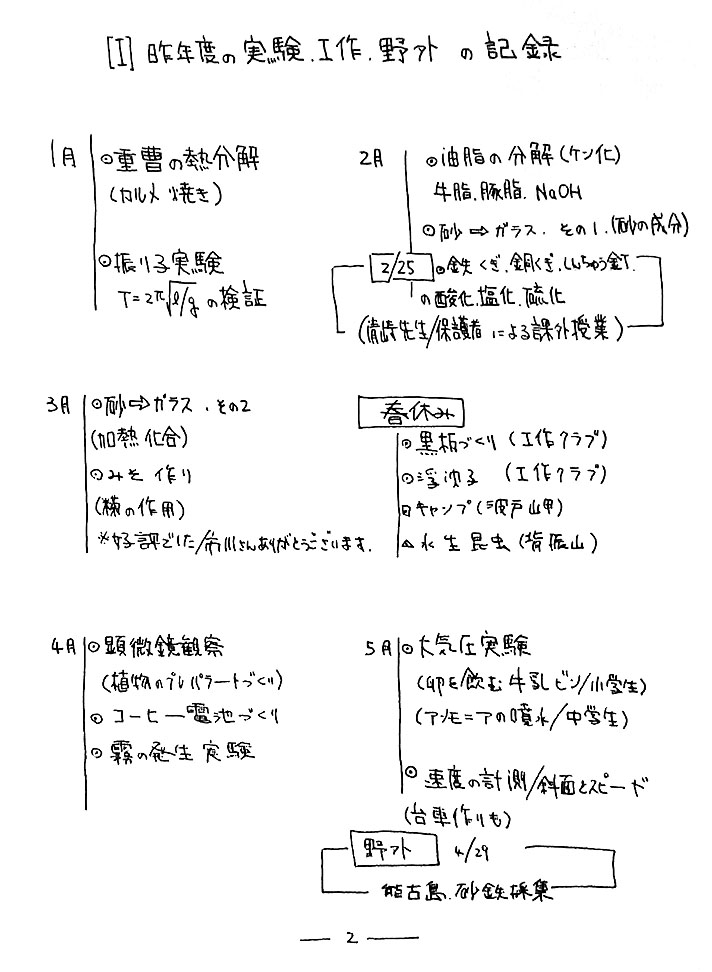 [I] 昨年度の実験.工作.野外の記録
1月
⊙重曹の熱分解
(カルメ焼き)
⊙振り子実験
T=2π√l/g の検証
2月
⊙油脂の分解(ケン化)
牛脂.豚脂.NaOH
⊙砂⇨ガラス.その1.(砂の成分)
2/25
⊙鉄くぎ.銅くぎ.しんちゅう釘.
の酸化.塩化.硫化
(先生/保護者による課外授業)
3月
⊙砂⇨ガラス.その2
(加熱化合)
⊙みそ作り
(糀の作用)
※好評でした/市川さんありがとうございます.
春休み
⊙黒板づくり(工作クラブ)
⊙浮沈子(工作クラブ)
キャンプ(波戸岬)
△水生昆虫(背振山)
4月
⊙顕微鏡観察
(植物のプレパラートづくり)
⊙コーヒー電池づくり
⊙霧の発生実験
5月
⊙大気圧実験
(卵を飲む牛乳ビン/小学生)
(アンモニアの噴水/中学生)
⊙速度の計測/斜面とスピード
(台車作りも)
野外 4/29
能古島.砂鉄採集
— 2 —